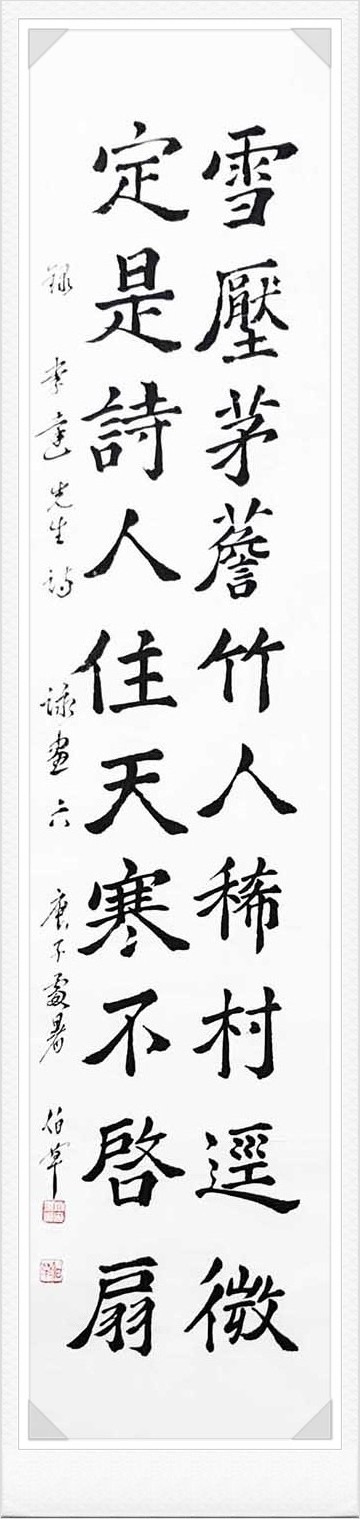 雪壓茅薝竹人稀村逕微
定是詩人住天寒不啓扇
錄 李達先生詩 詠畫六 庚子處暑 伯軍